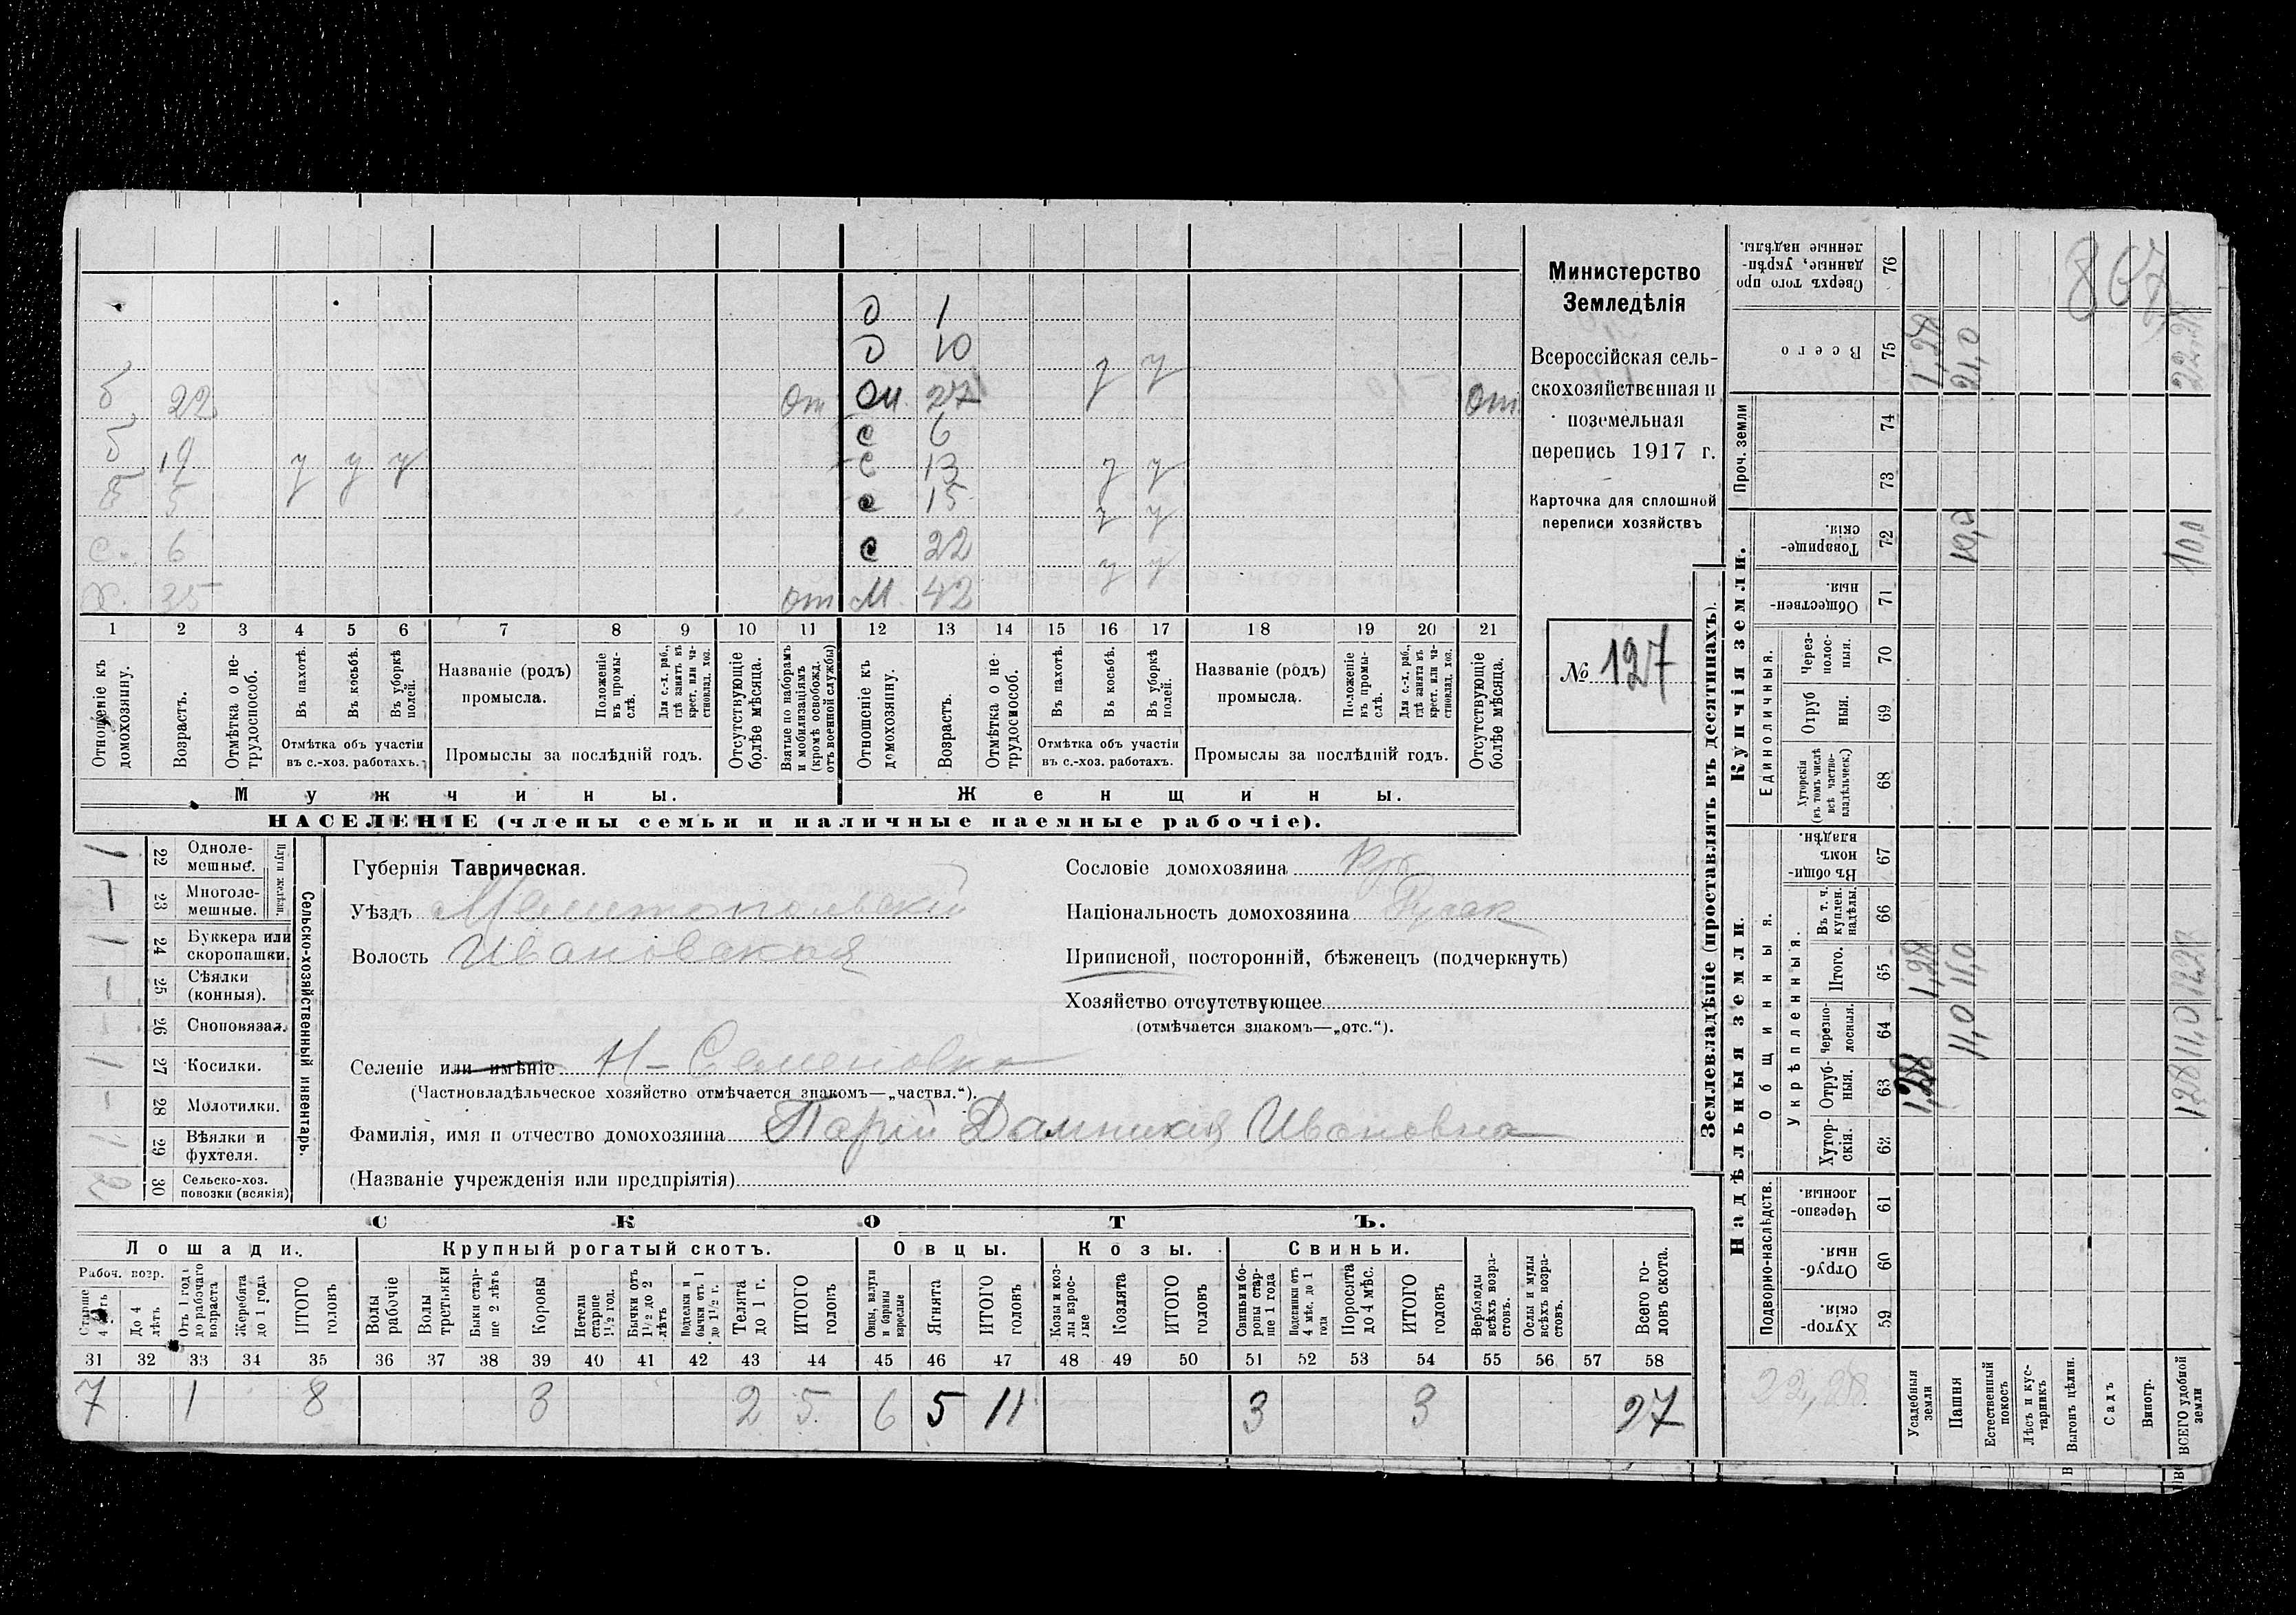 О 1
О 10 у у
б. 22 от Он. 27 от
с 6
б 19 у у у с 13 у у
б 5 с 15 у у
с. 6 с 22 у у
Х. 35 от М. 42
1 2 3 4 5 6 7 8 9 10 11 12 13 14 15 16 17 18 19 20 21
Отношеніе къ домохозяину.
Возрастъ.
Отмѣтка о не-
трудоспособ.
Въ пахотѣ.
Въ косьбѣ.
Въ уборкѣ полей.
Отмѣтка объ участіи
въ с.-хоз. работахъ.
Названіе (родъ)
промысла.
Положеніе въ промы-
слѣ.
Для с.-х. раб., гдѣ занятъ въ крест. или ча-
стновлад. хоз.
Промыслы за послѣдній годъ.
Отсутствующіе болѣе мѣсяца.
Взятые по наборамъ и мобилизаціямъ (кромѣ освобожд. отъ военной службы)
Отношеніе къ домохозяину.
Возрастъ.
Отмѣтка о не-
трудоспособ.
Въ пахотѣ.
Въ косьбѣ.
Въ уборкѣ полей.
Отмѣтка объ участіи
въ с.-хоз. работахъ.
Названіе (родъ)
промысла.
Положеніе въ промы-
слѣ.
Для с.-х. раб., гдѣ занята въ крест. или ча-
стновлад. хоз.
Промыслы за послѣдній годъ.
Отсутствующіе болѣе мѣсяца.
Мужчины.
Женщины.
НАСЕЛЕНІЕ (члены семьи и наличные наемные рабочіе).
Министерство
Земледѣлія
Всероссійская сель-
скохозяйственная и
поземельная
перепись 1917 г.
Карточка для сплошной
переписи хозяйствъ
№ 127
1 22 Одноле-
мешные.
1 23 Многоле-
мешные.
Плуги желѣзн.
1 24 Буккера или
скоропашки.
– 25 Сѣялки
(конныя).
– 26 Сноповязал.
1 27 Косилки.
– 28 Молотилки.
1 29 Вѣялки и
фухтеля.
2 30 Сельско-хоз.
повозки (всякія)
Сельско-хозяйственный инвентарь.
Губернія Таврическая.
Уѣздъ Мелитопольскій
Волость Ивановская
Селеніе или имѣніе Н-Семеновка
(Частновладѣльческое хозяйство отмѣчается знакомъ—„частвл.“).
Фамилія, имя и отчество домохозяина Парій Домникія Ивановна
(Названіе учрежденія или предпріятія)
Сословіе домохозяина Кр.
Національность домохозяина Русак
Приписной, посторонній, бѣженецъ (подчеркнуть)
Хозяйство отсутствующее
(отмѣчается знакомъ—„отс.“).
СКОТЪ.
Лошади.
Крупный рогатый скотъ.
Овцы.
Козы.
Свиньи.
Рабоч. возр.
Старше 4 лѣтъ
До 4 лѣтъ
Отъ 1 года до рабочаго возраста
Жеребята до 1 года
ИТОГО головъ
Волы рабочіе
Волы третьяки
Быки стар-
ше 2 лѣтъ
Коровы
Нетели старше 1½ год.
Бычки отъ 1½ до 2 лѣтъ
Подтелки и бычки отъ 1 до 1½ г.
Телята до 1 г.
ИТОГО головъ
Овцы, валухи и бараны взрослые
Ягнята
ИТОГО головъ
Козы и коз-
лы взрос-
лые
Козлята
ИТОГО головъ
Свиньи и бо-
ровы стар-
ше 1 года
Подсвинки отъ 4 мѣс. до 1 года
Поросята до 4 мѣс.
ИТОГО головъ
Верблюды всѣхъ возра-
стовъ.
Ослы и мулы всѣхъ возра-
стовъ.
Всего го-
ловъ скота.
31 32 33 34 35 36 37 38 39 40 41 42 43 44 45 46 47 48 49 50 51 52 53 54 55 56 57 58
7 1 8 3 2 5 6 5 11 3 3 27
Землевладѣніе (проставлять въ десятинахъ).
Надѣльныя земли.
Купчія земли.
Проч. земли
Подворно-наслѣдств.
Общинныя.
Укрѣпленныя.
Единоличныя.
Сверхъ того про
данные, укрѣп-
ленные надѣлы.
76
Всего
75
74
73
Товарище-
скія.
72
Обществен-
ныя.
71
Через-
полос-
ныя.
70
Отруб
ныя.
69
Хуторскія
(въ томъ числѣ
всѣ частно-
владѣльческ.)
68
Въ общи-
номъ
владѣн.
67
Въ т. ч.
куплен.
надѣлы.
66
Итого.
65
Черезпо-
лосныя.
64
Отруб-
ныя.
63
Хутор-
скія.
62
Черезпо-
лосныя.
61
Отруб-
ныя.
60
Хутор-
скія.
59
Усадебныя земли 1,28 1,28 1,28
Пашня 11,0 11,0 10,0 21,0
Естественный покосъ
Лѣсъ и кус-
тарникъ
Выгонъ цѣлин.
Садъ
Виногр.
ВСЕГО удобной земли 1,28 11,0 12,28 10,0 22,28
22,28
867